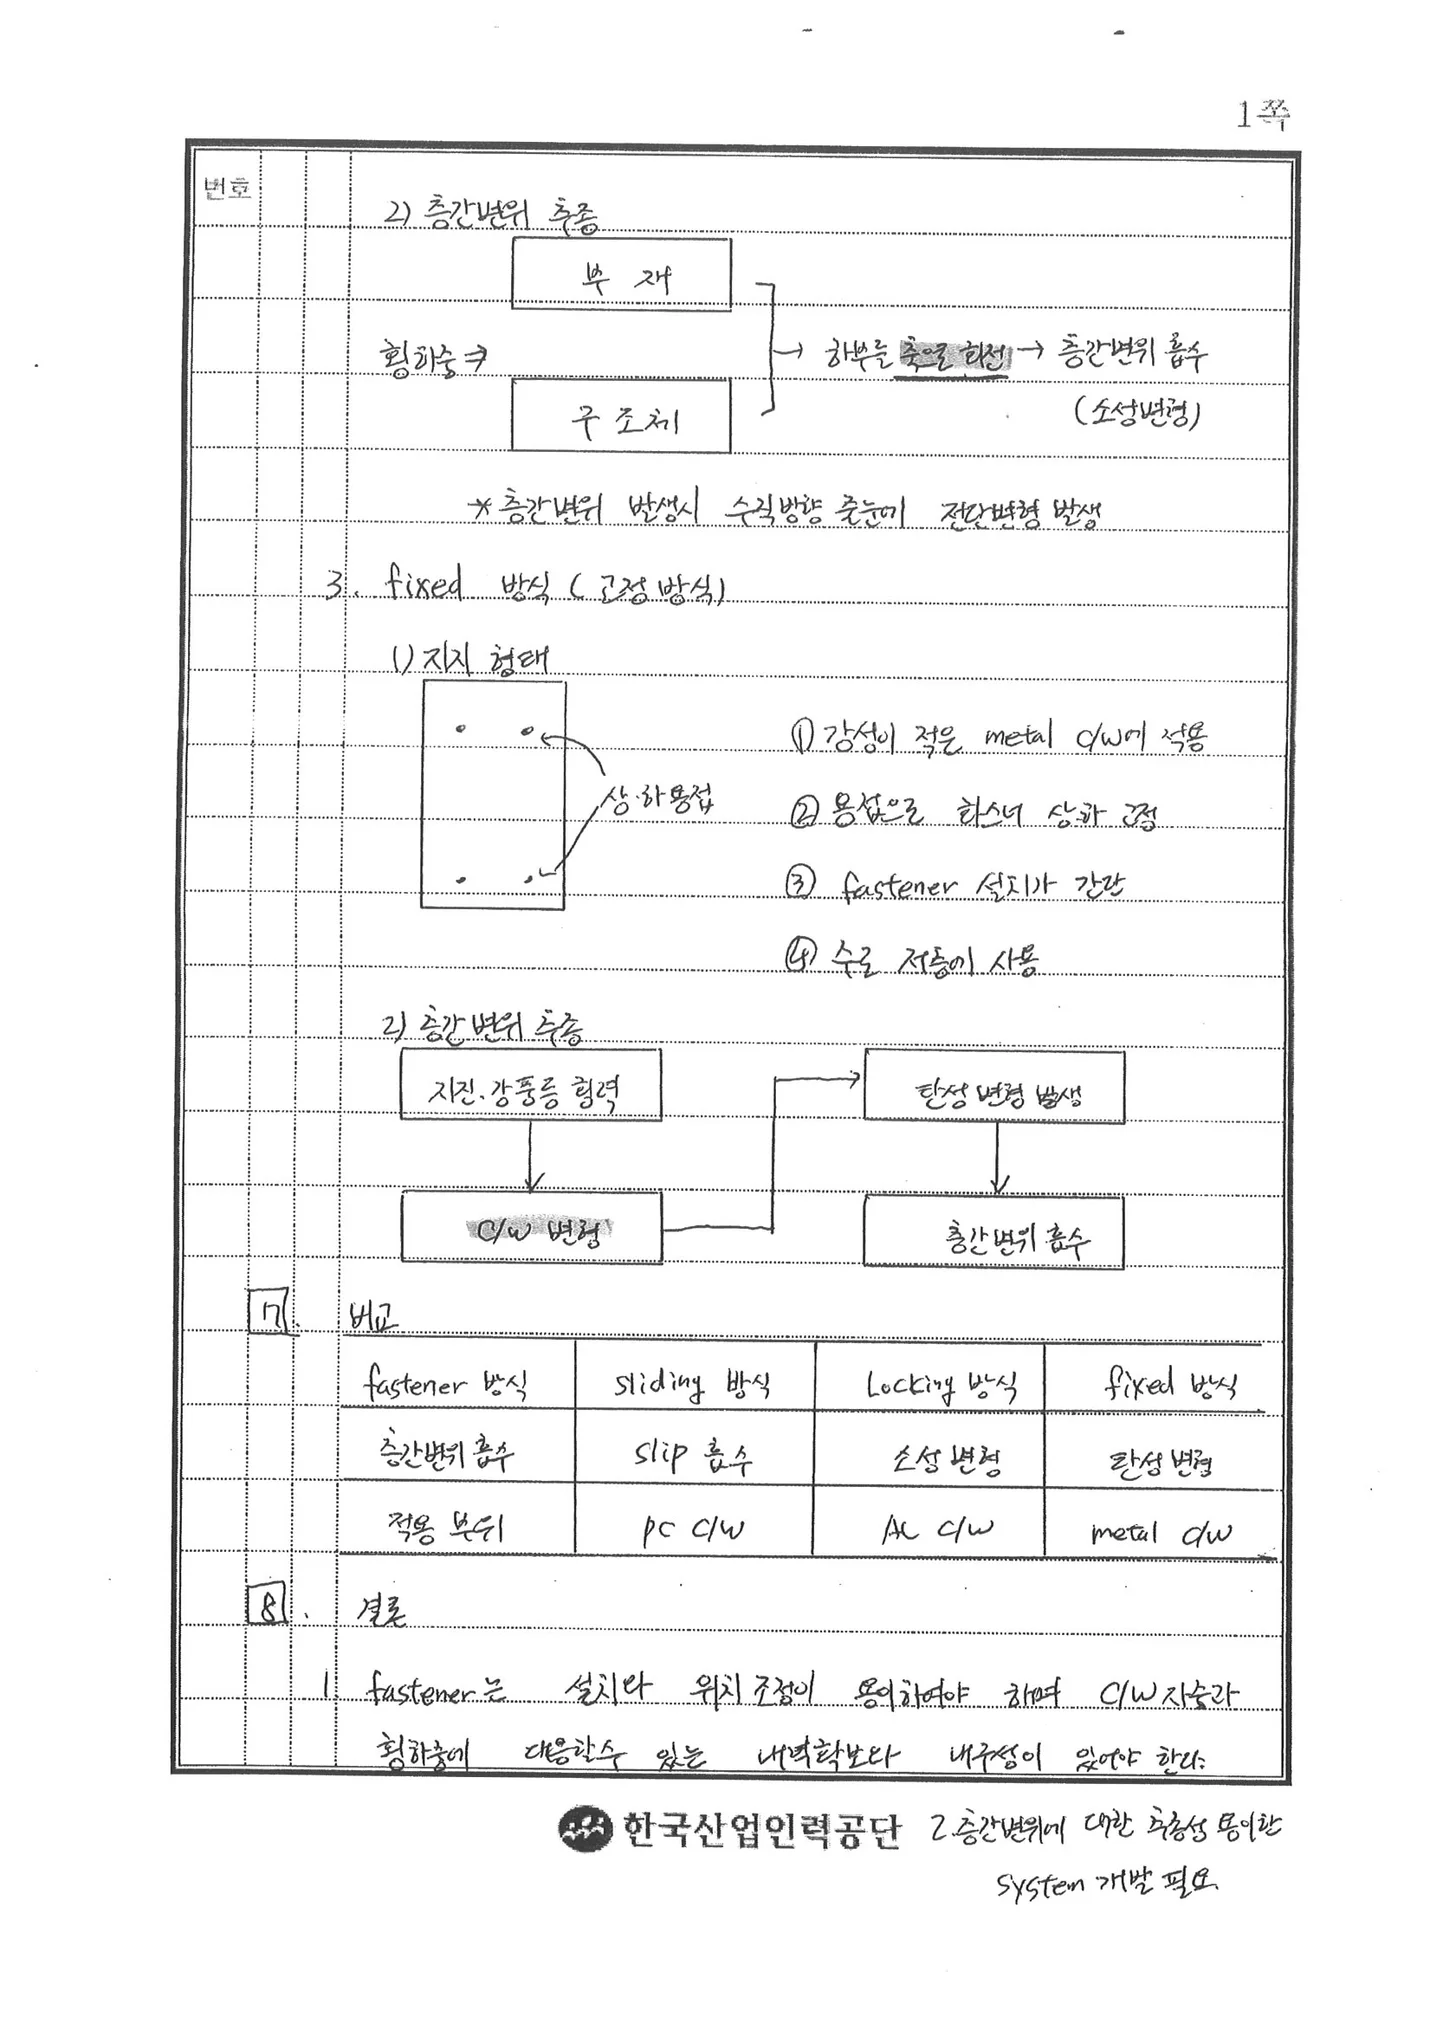 1쪽
번호
2) 층간변위 추종
부 재
횡하중⇒
→ 하부를 축으로 회전 → 층간변위 흡수
(소성변형)
구 조체
* 층간변위 발생시 수직방향 줄눈에 전단변형 발생
3. fixed 방식 (고정방식)
1) 지지 형태
상·하용접
① 강성이 적은 metal c/w에 적용
② 용접으로 화스너 상·하 고정
③ fastener 설치가 간단
④ 주로 저층에 사용
2) 층간변위 추종
지진·강풍등 횡력
탄성 변형 발생
C/W 변형
층간변위 흡수
7. 비교
fastener 방식 sliding 방식 Locking 방식 fixed 방식
층간변위 흡수 slip 흡수 소성 변형 탄성 변형
적용 부위 PC C/W AL C/W metal C/W
8. 결론
1 fastener는 설치와 위치 조정이 용이하여야 하며 C/W 자중과
횡하중에 대응할수 있는 내력확보와 내구성이 있어야 한다.
한국산업인력공단
2. 층간변위에 대한 추종성 용이한
system 개발 필요.